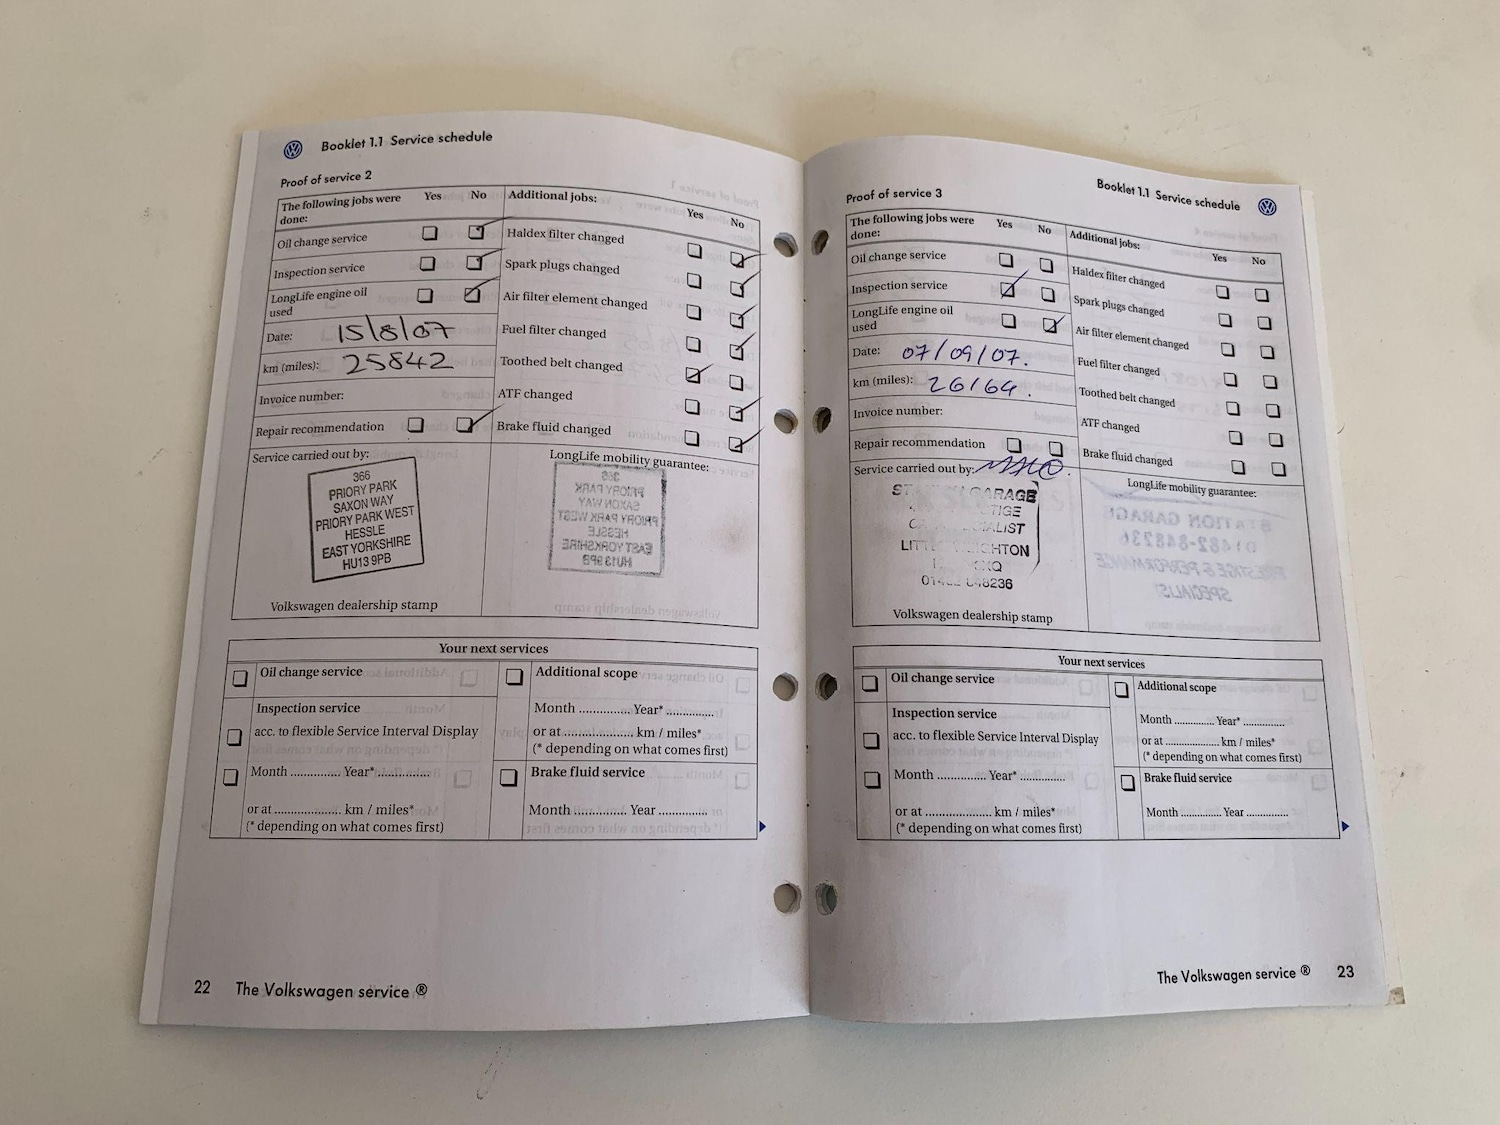 Booklet 1.1 Service schedule
Proof of service 2
The following jobs were done: Yes No
Oil change service
Inspection service
LongLife engine oil used
Date: 15/8/07
km (miles): 25842
Invoice number:
Repair recommendation
Additional jobs: Yes No
Haldex filter changed
Spark plugs changed
Air filter element changed
Fuel filter changed
Toothed belt changed
ATF changed
Brake fluid changed
Service carried out by:
366
PRIORY PARK
SAXON WAY
PRIORY PARK WEST
HESSLE
EAST YORKSHIRE
HU13 9PB
Volkswagen dealership stamp
LongLife mobility guarantee:
366
PRIORY PARK
SAXON WAY
PRIORY PARK WEST
HESSLE
EAST YORKSHIRE
HU13 9PB
Your next services
Oil change service
Inspection service
acc. to flexible Service Interval Display
Month .............. Year* ..............
or at ................... km / miles*
(* depending on what comes first)
Additional scope
Month .............. Year* .............
or at ................... km / miles*
(* depending on what comes first)
Brake fluid service
Month .............. Year .............
22 The Volkswagen service ®
Booklet 1.1 Service schedule
Proof of service 3
The following jobs were done: Yes No
Oil change service
Inspection service
LongLife engine oil used
Date: 07/09/07.
km (miles): 26164.
Invoice number:
Repair recommendation
Additional jobs: Yes No
Haldex filter changed
Spark plugs changed
Air filter element changed
Fuel filter changed
Toothed belt changed
ATF changed
Brake fluid changed
Service carried out by:
GARAGE
848236
Volkswagen dealership stamp
LongLife mobility guarantee:
STATION GARAGE
01482-848236
PRESTIGE & PERFORMANCE
SPECIALIST
Your next services
Oil change service
Inspection service
acc. to flexible Service Interval Display
Month .............. Year* .............
or at ................... km / miles*
(* depending on what comes first)
Additional scope
Month .............. Year* ..............
or at ................... km / miles*
(* depending on what comes first)
Brake fluid service
Month .............. Year ..............
The Volkswagen service ® 23